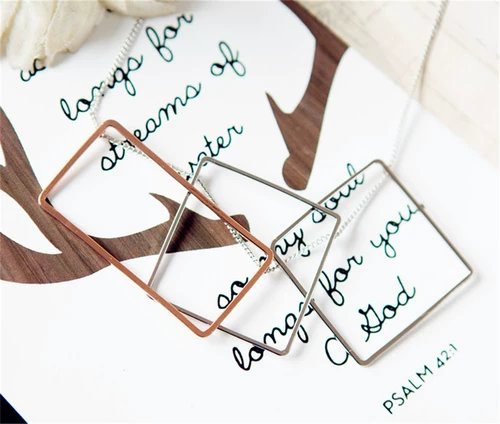 as
longs for
streams of
so my soul
longs for you
O God
PSALM 42:1